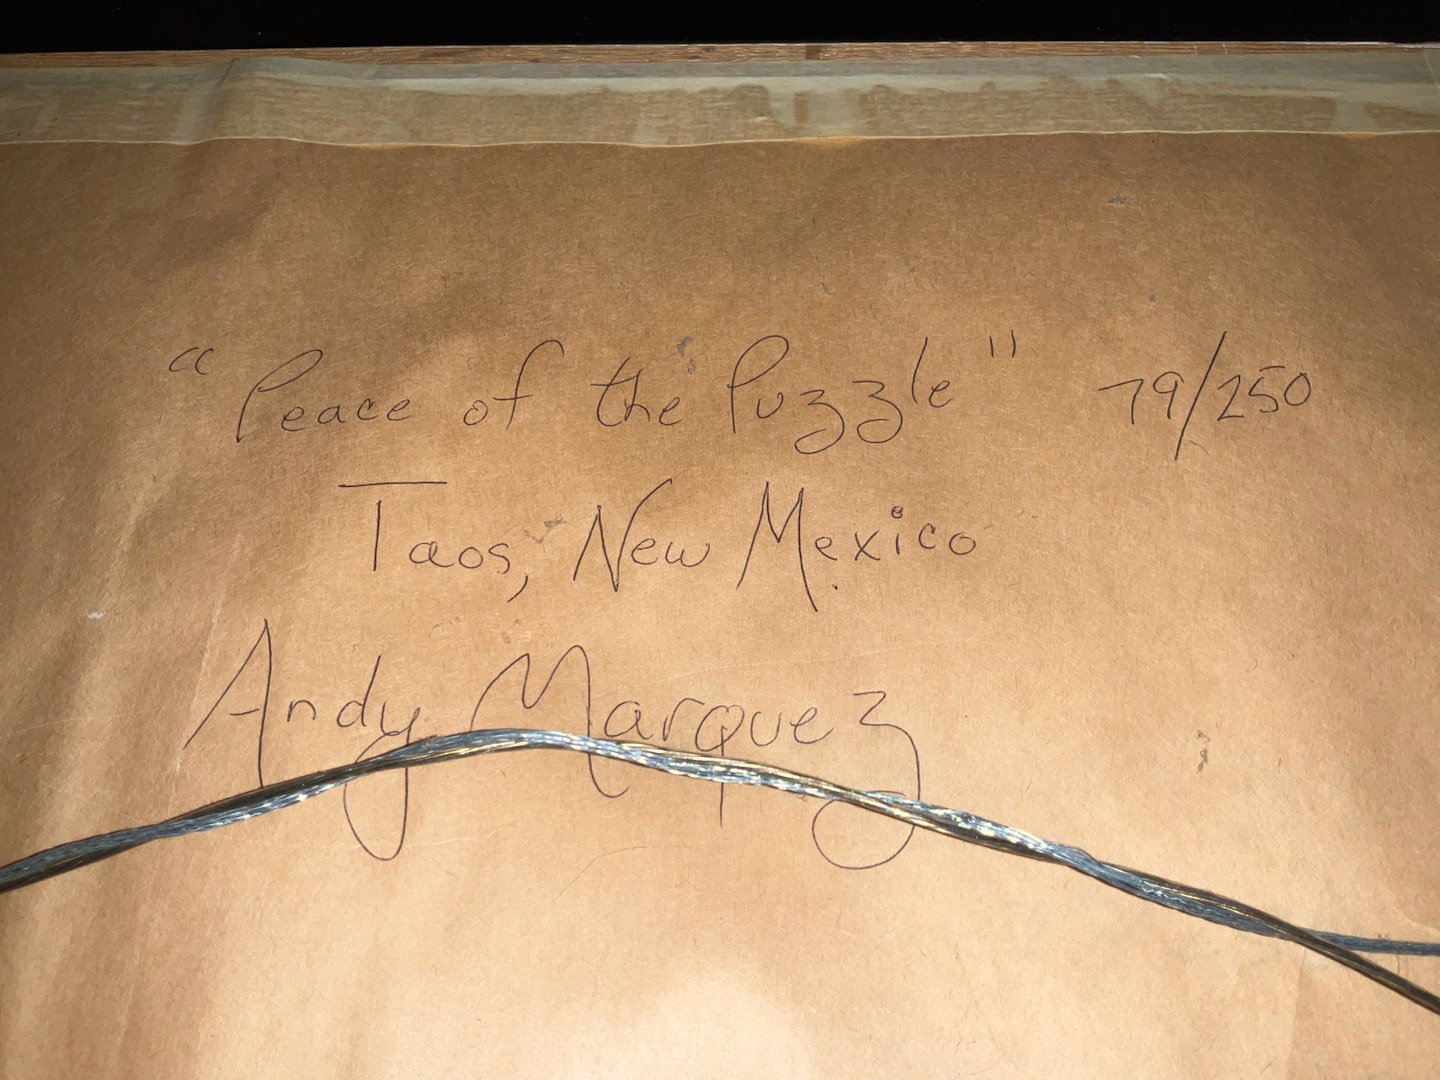 "Peace of the Puzzle" 79/250
Taos, New Mexico
Andy Marquez